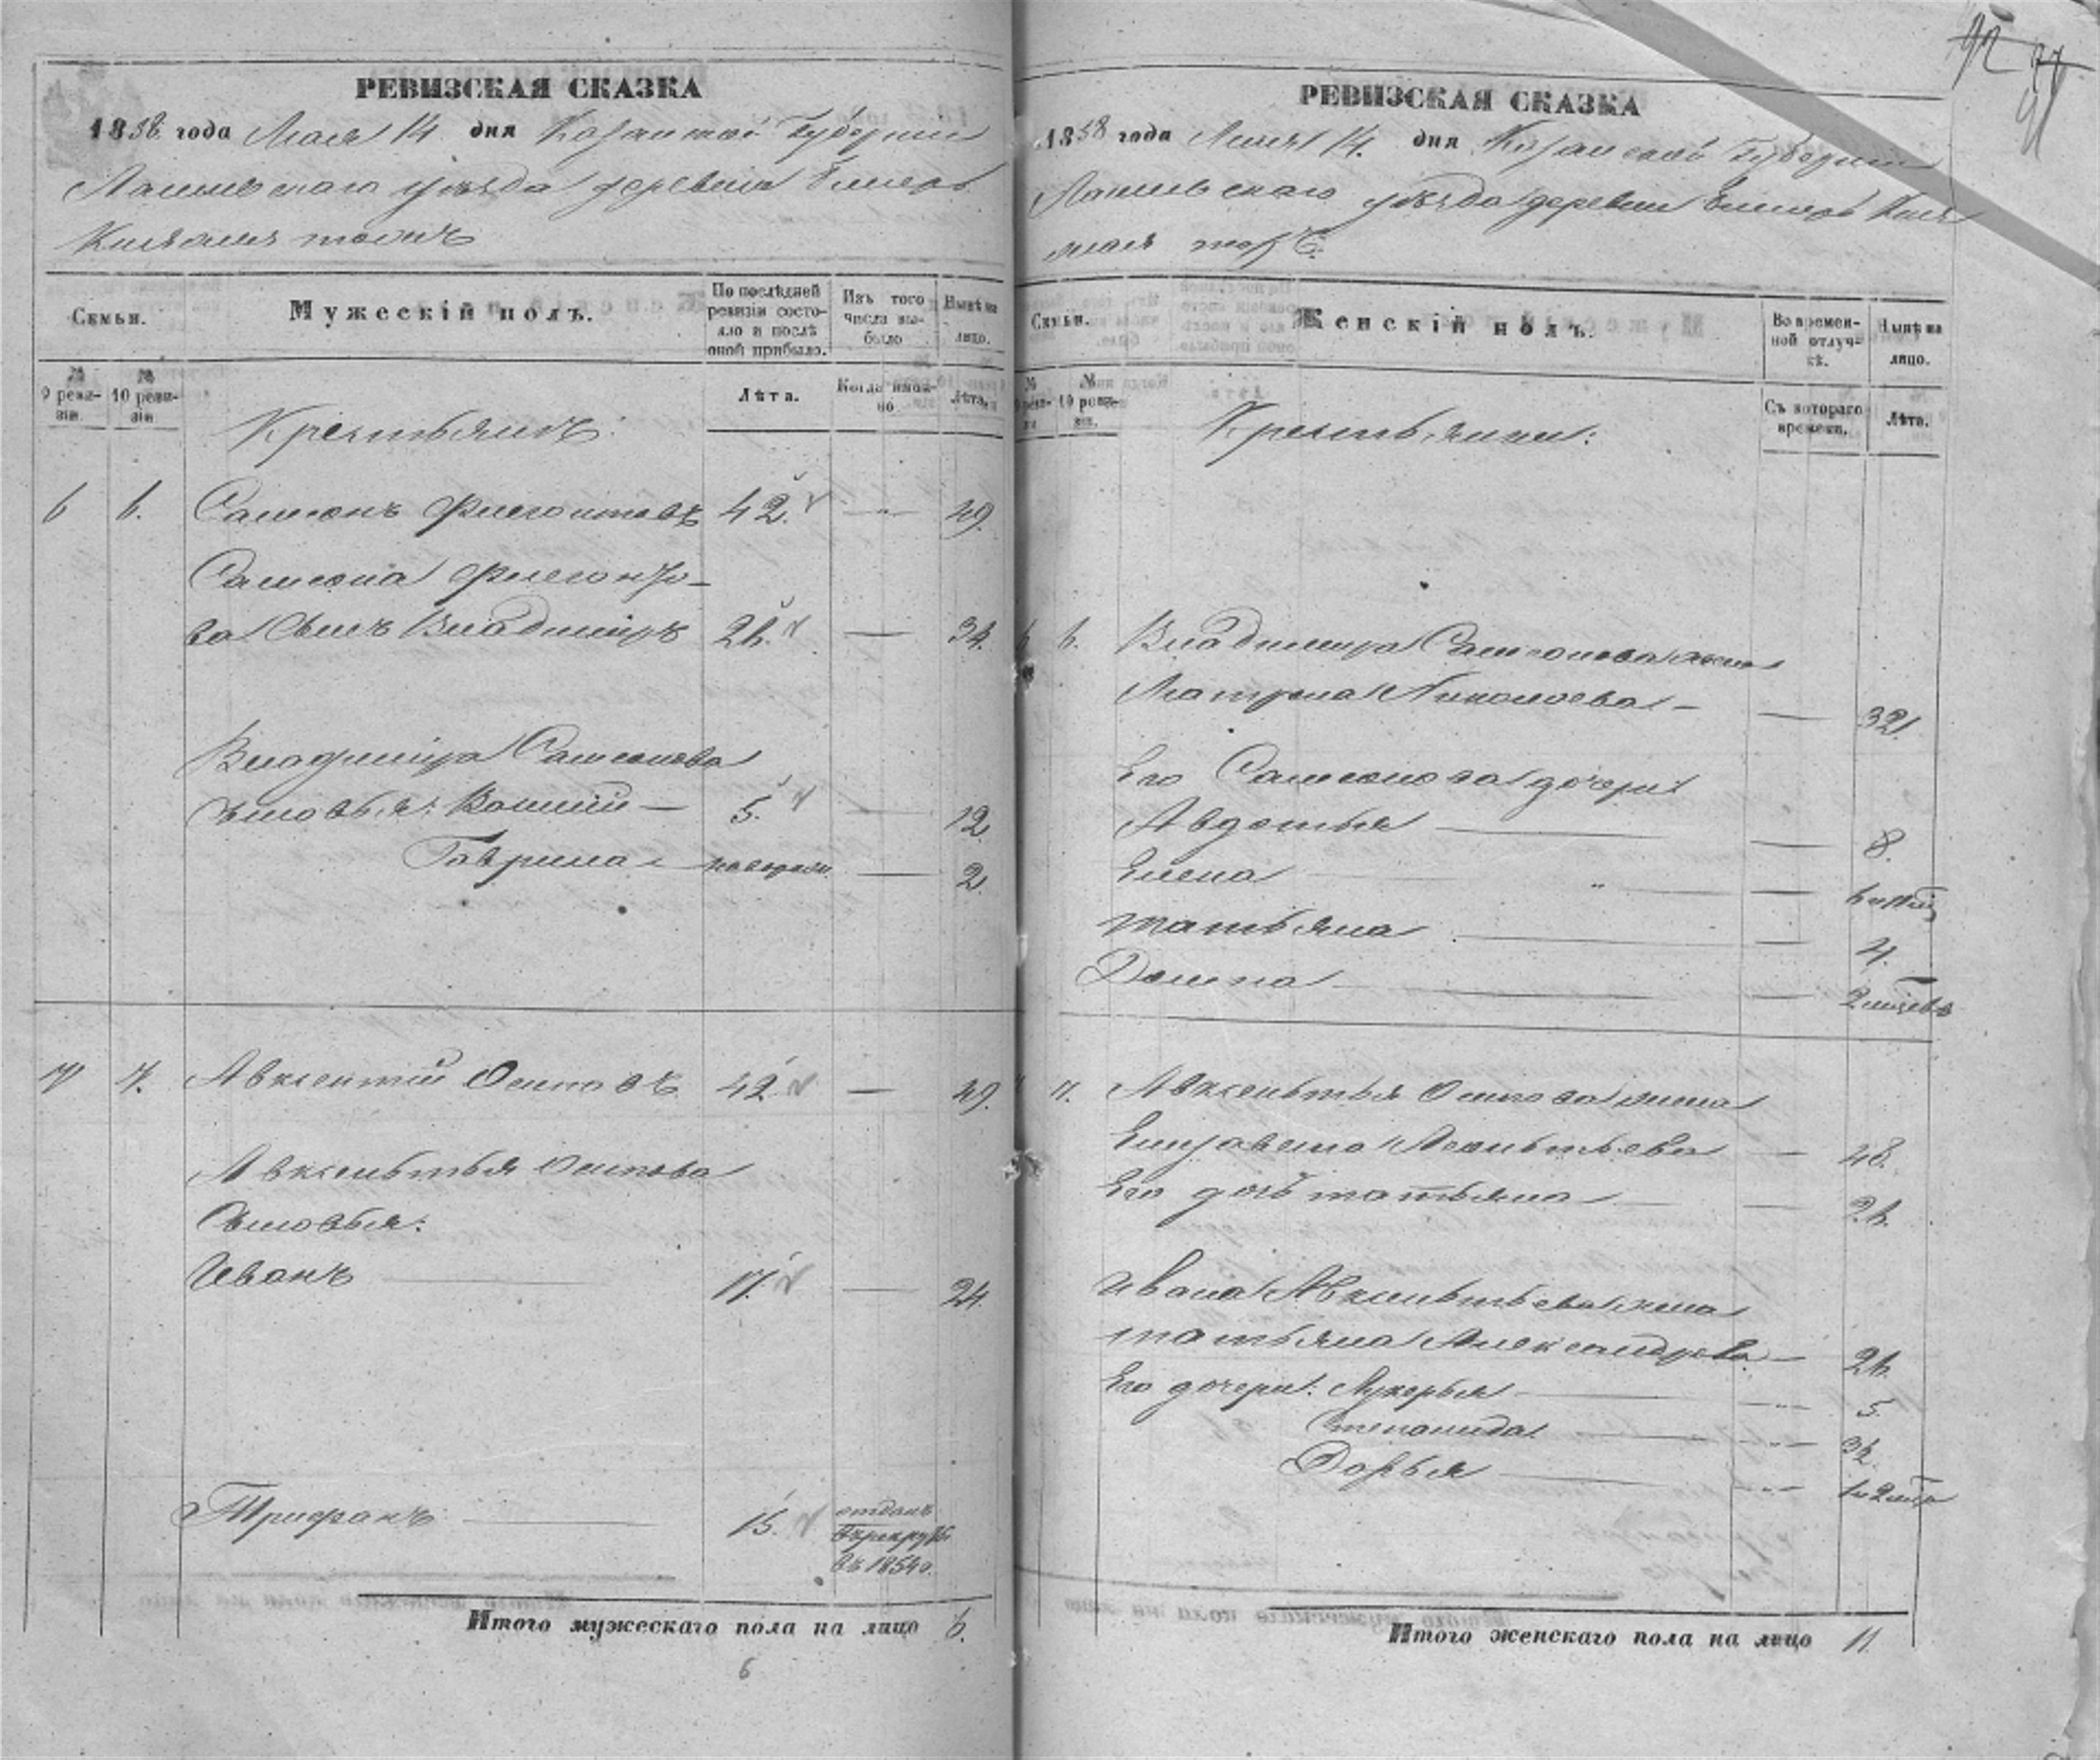 РЕВИЗСКАЯ СКАЗКА
1858 года Мая 14 дня Казанской Губернии
Лаишевскаго уѣзда деревни
Семьи.
Мужескій полъ.
По послѣдней ревизіи состояло и послѣ оной прибыло.
Изъ того числа выбыло
Нынѣ на лицо.
№ 9 ревизіи.
№ 10 ревизіи
Лѣта.
Когда именно
Лѣта.
Крестьянъ:
6 6. Самсонъ Флегонтовъ 42. — 49.
Самсона Флегонто-
ва сынъ Владиміръ 26. — 34.
Владиміра Самсонова
сыновья: — 5. — 12.
Гаврила — новорож. — 2.
7 7. Авксентій Осиповъ 42 — 49.
Авксентья Осипова
Сыновья:
Иванъ 17. — 24.
Трифанъ 15.
отданъ
въ рекруты
въ 1854 г.
Итого мужескаго пола на лицо 6.
6
92
РЕВИЗСКАЯ СКАЗКА
1858 года Мая 14. дня Казанской Губерніи
Лаишевскаго уѣзда деревни
Семьи.
Женскій полъ.
Во временной отлучкѣ.
Нынѣ на лицо.
№ 9 ревизіи
№ 10 ревизіи.
Съ котораго времени.
Лѣта.
Крестьянки:
6 6. Владиміра Самсонова жена
Матрена Николаева — — 32
Его Самсонова дочери
Авдотья — 8.
Елена " —
Татьяна — 4.
Домна — 2 месецов
7. Авксентья Осипова жена
Елизавета Леонтьева — 48.
Его дочь Татьяна — 26.
Ивана Авксентьева жена
Татьяна Александрова — 26.
Его дочери: Лукерья 5.
Степанида
Дарья
Итого женскаго пола на лицо 11.